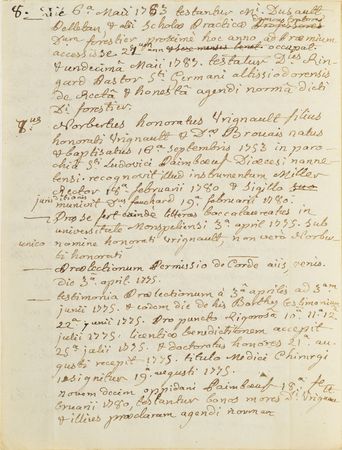 8.- die 6ª Maii 1783 testantur Mri. Dussault
Pelletan, & alii Scholæ Practicæ
Dum forestier proxime hoc anno ad præmium
accessisse 24um occupat.
& undecima Maii 1783. testatur Dnus Rin-
guard Pastor Sti Germani altissiodorensis
de Recta & honesta agendi norma dicti
Di. forestier.
8.us Norbertus honoratus Vrignault filius
honorati Vrignault & Dæ Brouais natus
& baptisatus 16ª septembris 1753 in paro-
chia Sti Ludovici Paimboeuf Diœcesi nanne-
tensi. recognovit illud instrumentum Miller
Rector 18ª februarii 1780 & Sigillo
munivit Dnus fouchard 19ª februarii 1780.
Pro se fert litteras baccalaureatus in
universitate Monspeliensi 3ª aprilis 1775. sub
unico nomine honorati Vrignault, non vero Norber-
ti honorati
Prælectionum Permissio de Corde aiis, venis.
die 3ª aprilis 1775.
testimonia Prælectionum à 3ª aprilis ad
junii 1775. & eodem die de his Barthez testimonium
22ª junii 1775. Pro puncto Rigorosa 10ª 11ª 12
julii 1775. licentiæ benedictionem accepit
25ª julii 1775. & doctoratus honores 21ª au-
gusti recepit 1775. titulo Medici Chirurgi
insignitur 19ª augusti 1775.
novemdecim oppidani Paimboeuf 18ª fe-
bruarii 1780 testantur bonos mores Di. Vrignau
& illius præclaram agendi normam